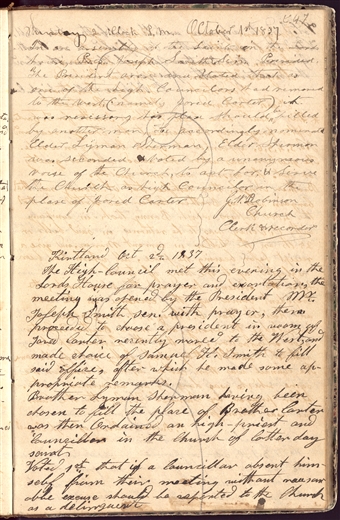 Sunday 2 o'clock P.M. October 1st 1837.
by
The President arose and stated that as
one of the High Councilors had removed
to the West (namely Jared Carter) it
was necessary his place should filled
by another man he accordingly nominated
Elder Lyman Sherman, Elder Sherman
was seconded & voted by a unanimous
voice of the Church, to act for & serve
the Church as high Councilor in the
place of Jared Carter
G. W. Robinson
Church
Clerk & recorder
Kirtland Oct 2d 1837
The High-Council met this evening in the
Lords House for prayer and exortation, the
meeting was opened by the President Mr.
Joseph Smith sen. with prayer, then
proceeded to choose a president in room of
Jared Carter, recently moved to the West, and
made choice of Samuel H. Smith to fill
said office, after which he made some ap-
propriate remarks.
Brother Lyman Sherman having been
chosen to fill the place of Brother Carter
was then Ordained an high-priest and
Councillor in the Church of latter day
saints.
Voted, 1st that if a councillar absent him-
self from their meeting without reason
able excuse should be reported to the Church
as a delinquent